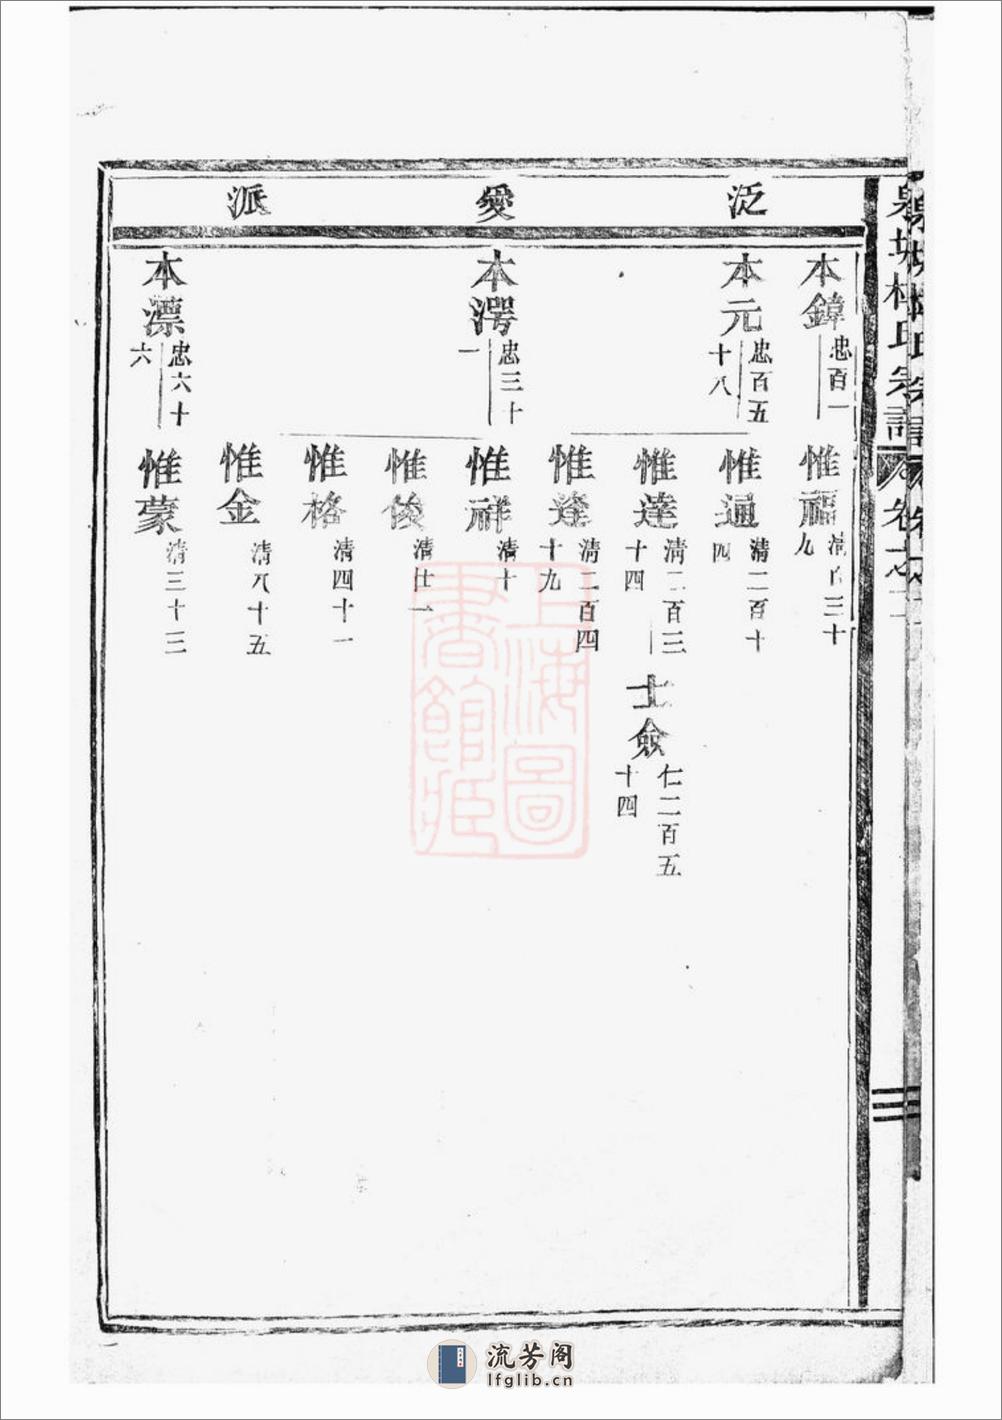 泛愛派
本鍏
忠百一
本元
忠百五
十八
本澐
忠三十
一
本漂
忠六十
六
惟福
清百三十
九
惟通
清二百十
四
惟達
清二百三
十四
惟逢
清二百四
十九
惟祥
清十
惟俊
清廿一
惟格
清四十一
惟金
清八十五
惟蒙
清三十三
士儉
仁二百五
十四
氏宗譜
卷之二
三
上海圖
書館藏
流芳阁
lfglib.cn